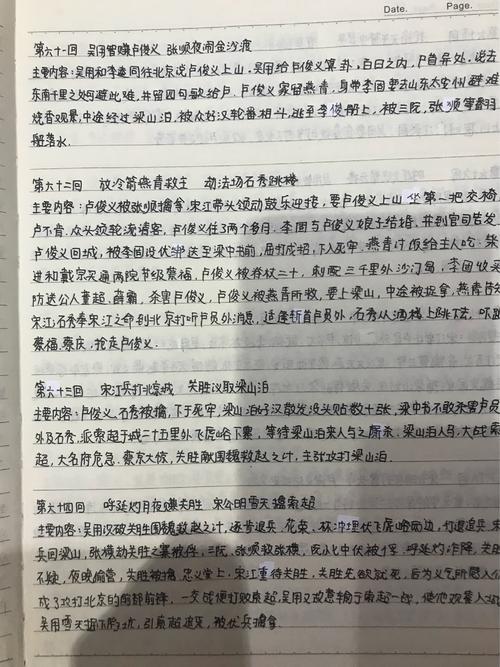 Date.    Page.
第六十一回 吴用智赚卢俊义 张顺夜闹金沙渡
主要内容:吴用和李逵同往北京说卢俊义上山,吴用给卢俊义算卦,百日之内,尸首异处,说去
东南千里之外可避此难,并留四句歌给卢。卢俊义家留燕青,身带李固要去山东太安州避难
烧香观景,中途经过梁山泊,被众好汉轮番相斗,逃至李俊船上,被三阮、张顺等翻
船落水.
第六十二回 放冷箭燕青救主 劫法场石秀跳楼
主要内容:卢俊义被张顺擒拿,宋江带头领动鼓乐迎接,要卢俊义上山坐第一把交椅
卢不肯,众头领轮流请客,卢俊义住了两个多月.李固与卢俊义娘子结婚,并到官司首发
卢俊义回城,被李固设伏绑送至梁中书前,屈打成招,下入死牢.燕青讨饭给主人吃.柴
进和戴宗买通两院节级蔡福,卢俊义被脊杖二十,刺配三千里外沙门岛,李固收买
防送公人董超,薛霸,杀害卢俊义,卢俊义被燕青所救,要上梁山,中途被捉拿,燕青告知
宋江,石秀奉宋江之命到北京打听卢员外消息,适逢斩首卢员外,石秀从酒楼上跳下去,吓跑
蔡福,蔡庆,抢走卢俊义.
第六十三回 宋江兵打北京城 关胜议取梁山泊
主要内容:卢俊义,石秀被擒,下于死牢,梁山泊好汉散发没头帖数十张,梁中书不敢杀害卢员
外及石秀,派索超于城二十五里外飞虎峪下寨,等待梁山泊来人与之厮杀.梁山泊人马,大战索
超,大名府危急.蔡京大惊,关胜献围魏救赵之计,主张攻打梁山泊.
第六十四回 呼延灼月夜赚关胜 宋公明雪天擒索超
主要内容:吴用汉破关胜围魏救赵之计,逐步退兵,花荣、林冲埋伏飞虎峪两边,打退追兵.宋
兵回梁山,张横劫关胜之寨被俘,三阮、张顺救张横,阮小七中伏被俘.呼延灼诈降,关胜
不疑,夜晚偷营,关胜被擒,忠义堂上,宋江重待关胜,关胜先欲就死,后为义气所感入伙
成了攻打北京的前部前锋,一交战便打败索超,吴用又故意
吴用雪天掘下陷坑,引索超追赶,被伏兵擒拿.